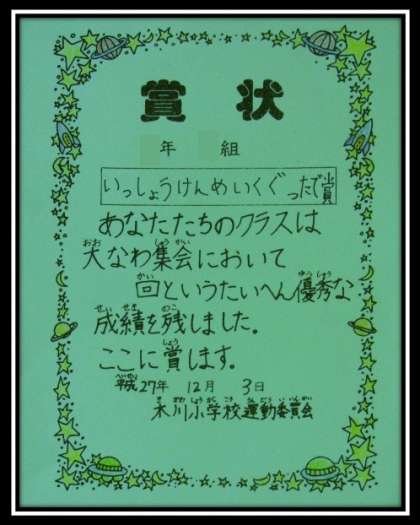 賞状
年 組
いっしょうけんめいくぐったで賞
あなたたちのクラスは
大なわ集会において
回というたいへん優秀な
成績を残しました。
ここに賞します。
平成27年 12月 3日
木川小学校運動委員会